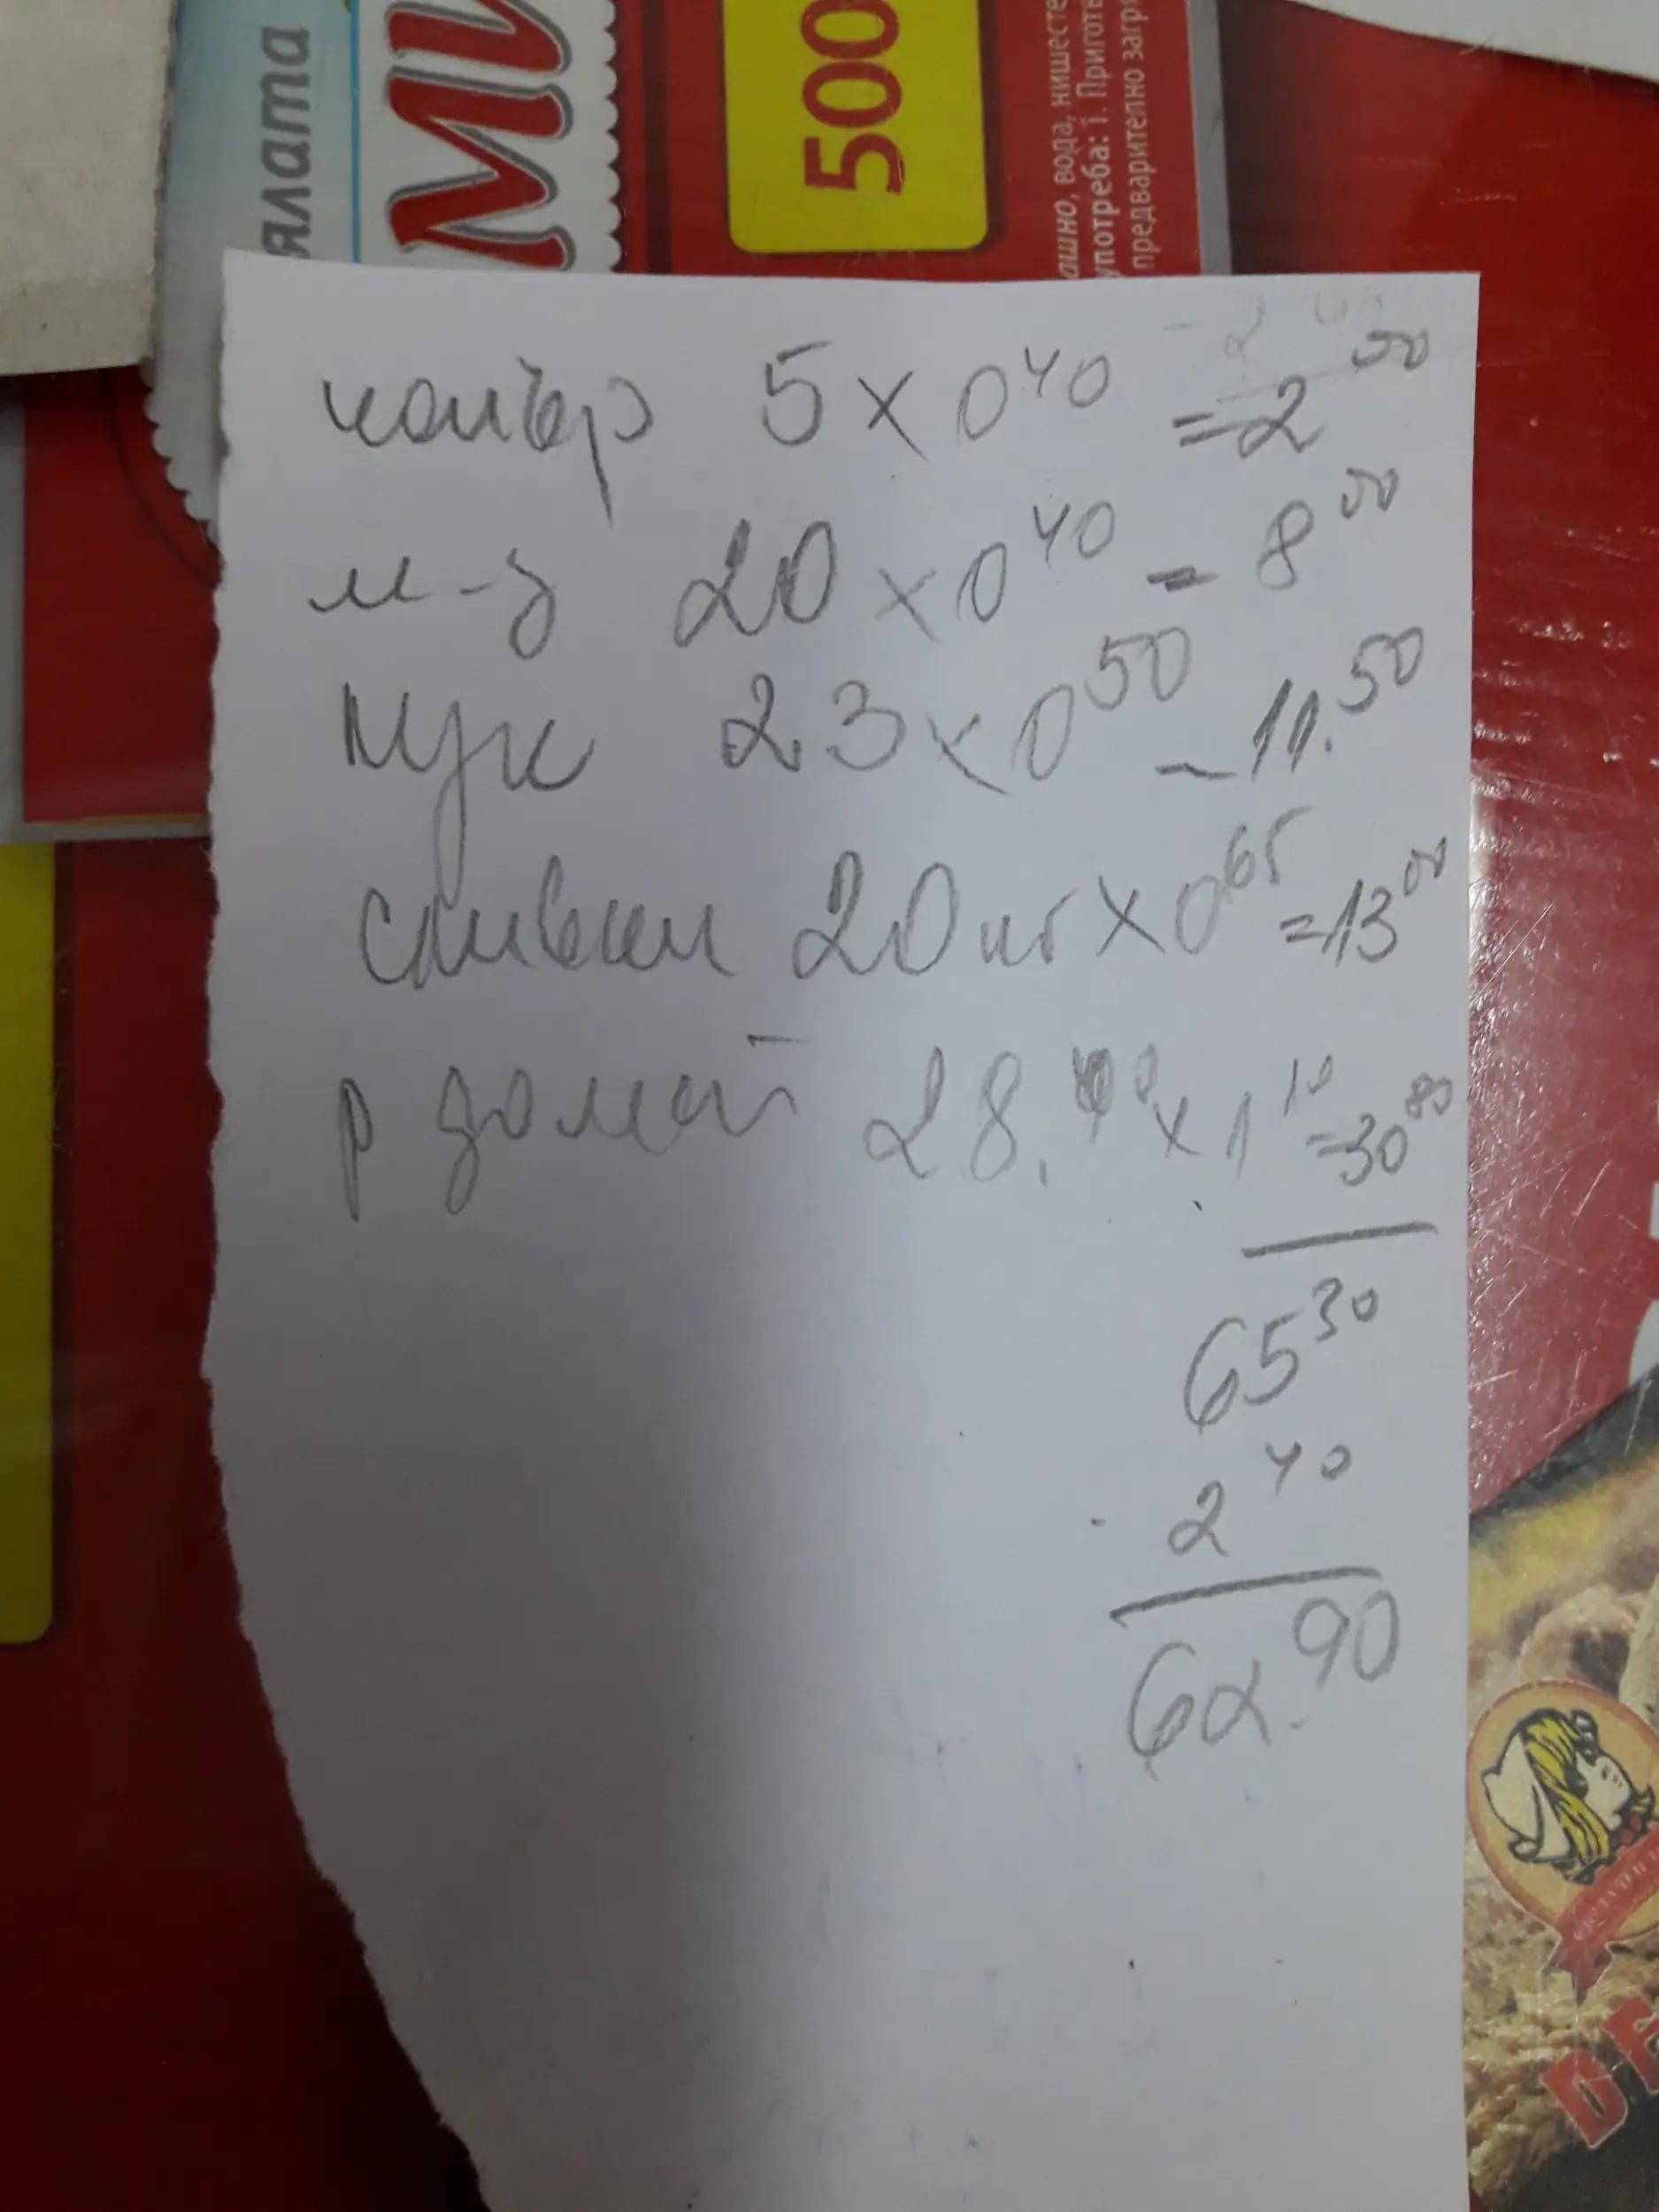 ялата
МИ
500
вода, нишесте
употреба: 1. Пригот
предварително загр
копър 5 x 0 40 = 2 00
м-з 20 x 0 40 = 8 00
лук 23 x 0 50 - 11.50
сливи 20 кг x 0 65 = 13 00
р домат 28. x 1 10 = 30 80
65 30
2 40
62.90